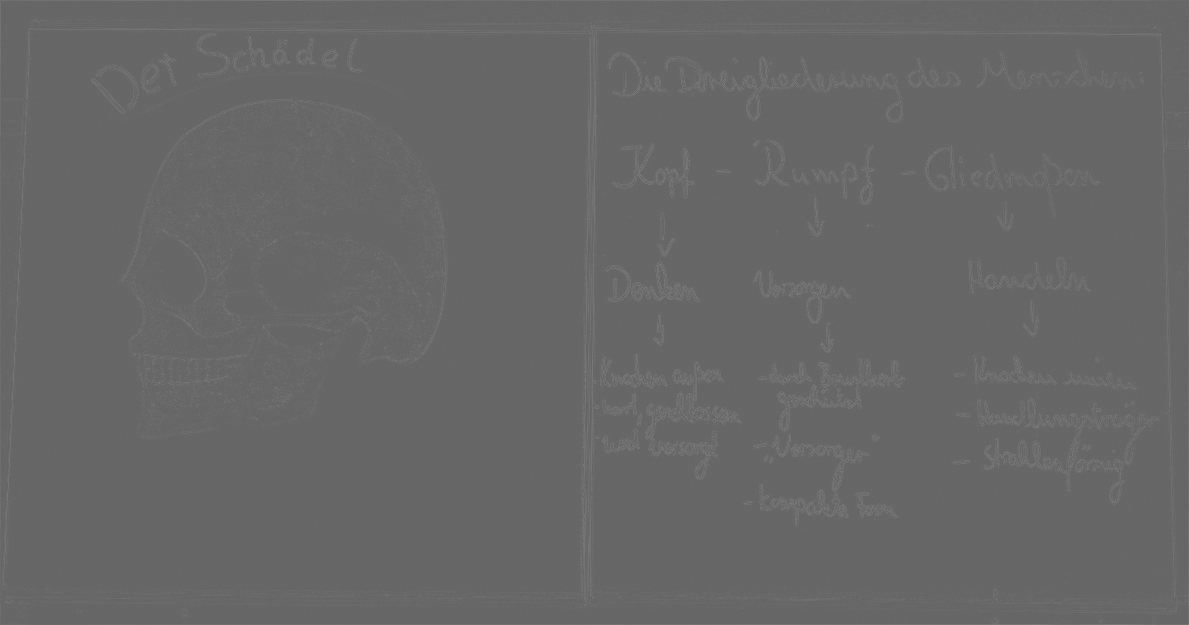 Der Schädel
Die Dreigliederung des Menschen:
Kopf - Rumpf - Gliedmaßen
Denken Versorgen Handeln
- Knochen außen
- hart, geschlossen
- wird versorgt
- durch Brustkorb
geschützt
- „Versorger“
- kompakte Form
- Knochen innen
- Handlungsträger
- strahlenförmig